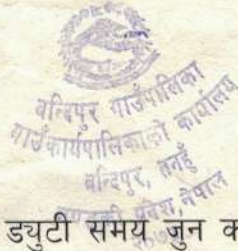 बन्दिपुर गाउँपालिका
गाउँकार्यपालिकाको कार्यालय
बन्दिपुर, तनहुँ
गण्डकी प्रदेश, नेपाल
ड्युटी समय जुन क